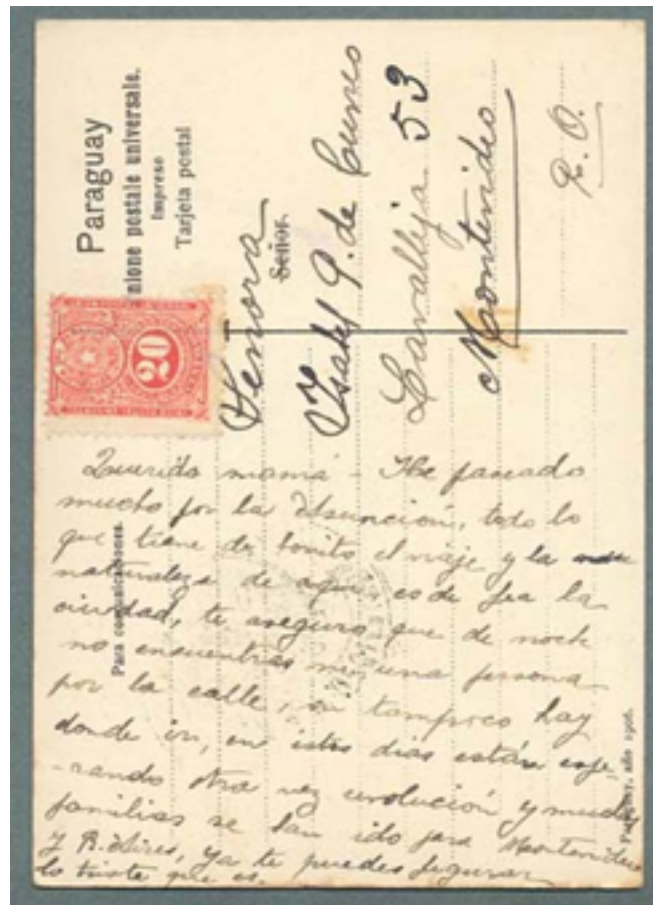 Paraguay
Unione postale universale.
Impreso
Tarjeta postal
20
Señor.
Senora
Ysabel P. de Cuneo
Lavalleja 53
Montevideo
R. O.
Para comunicaciones.
Querida mamá - He paseado
mucho por la Asunción, todo lo
que tiene de bonito el viaje y la
naturaleza de aquí es de fea la
ciudad, te aseguro que de noche
no encuentras ninguna persona
por la calle, tampoco hay
donde ir, en estos dias están espe
-rando otra vez revolución y muchas
familias se han ido para Montevideo
y B. Aires, ya te puedes figurar
lo triste que es.
Paraguay, año 1906.